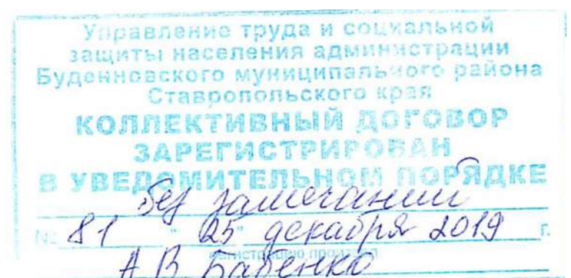 Управление труда и социальной
защиты населения администрации
Буденновского муниципального района
Ставропольского края
КОЛЛЕКТИВНЫЙ ДОГОВОР
ЗАРЕГИСТРИРОВАН
В УВЕДОМИТЕЛЬНОМ ПОРЯДКЕ
без замечаний
№ 81 "25" декабря 2019 г.
регистрацию провел
А.В. Бабенко